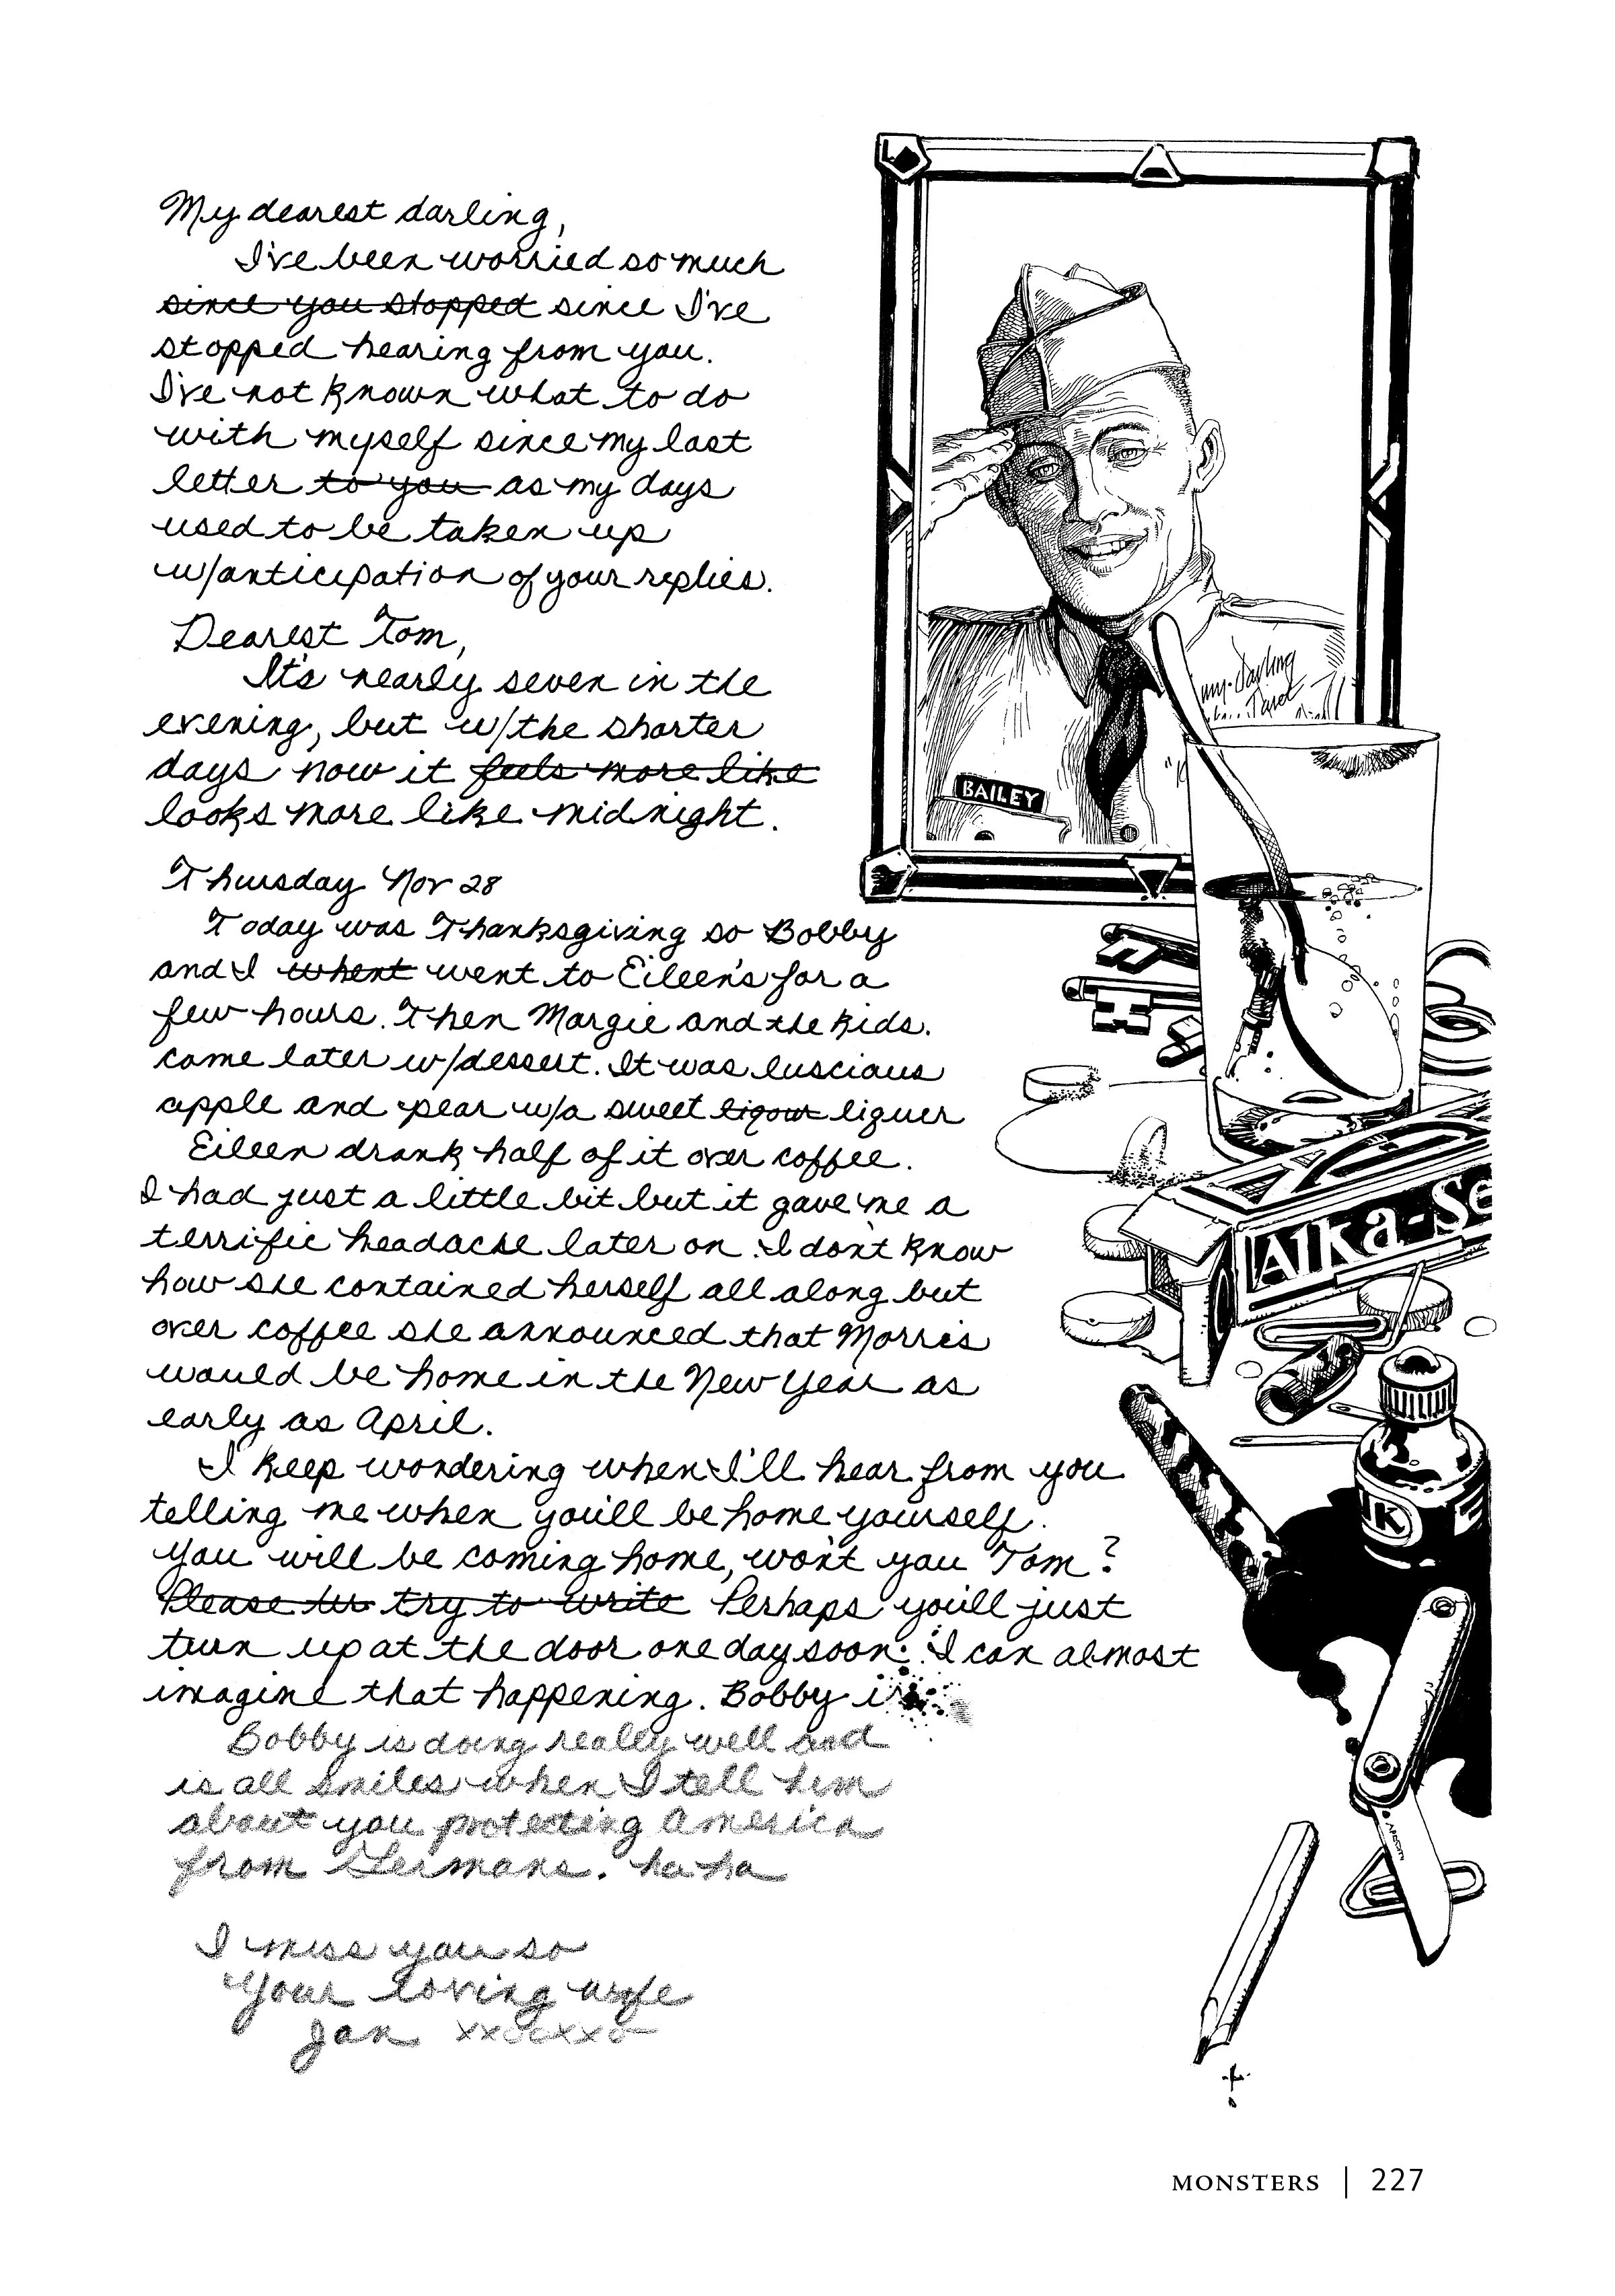 My dearest darling,
I've been worried so much
since you stopped since I've
stopped hearing from you.
I've not known what to do
with myself since my last
letter to you as my days
used to be taken up
w/anticipation of your replies.
Dearest Tom,
It's nearly seven in the
evening, but w/the shorter
days now it feels more like
looks more like midnight.
Thursday Nov 28
Today was Thanksgiving so Bobby
and I whent went to Eileen's for a
few hours. Then Margie and the kids.
came later w/dessert. It was luscious
apple and pear w/a sweet ligour liquer
Eileen drank half of it over coffee.
I had just a little bit but it gave me a
terrific headache later on. I don't know
how she contained herself all along but
over coffee she announced that Morris
would be home in the New Year as
early as April.
I keep wondering when I'll hear from you
telling me when you'll be home yourself.
You will be coming home, won't you Tom?
Please try to write Perhaps you'll just
turn up at the door one day soon. I can almost
imagine that happening. Bobby i
Bobby is doing really well and
is all smiles when I tell him
about you protecting America
from Germans. ha ha
I miss you so
Your loving wife
Jan
Darling
BAILEY
Alka-Se
NK
MONSTERS | 227